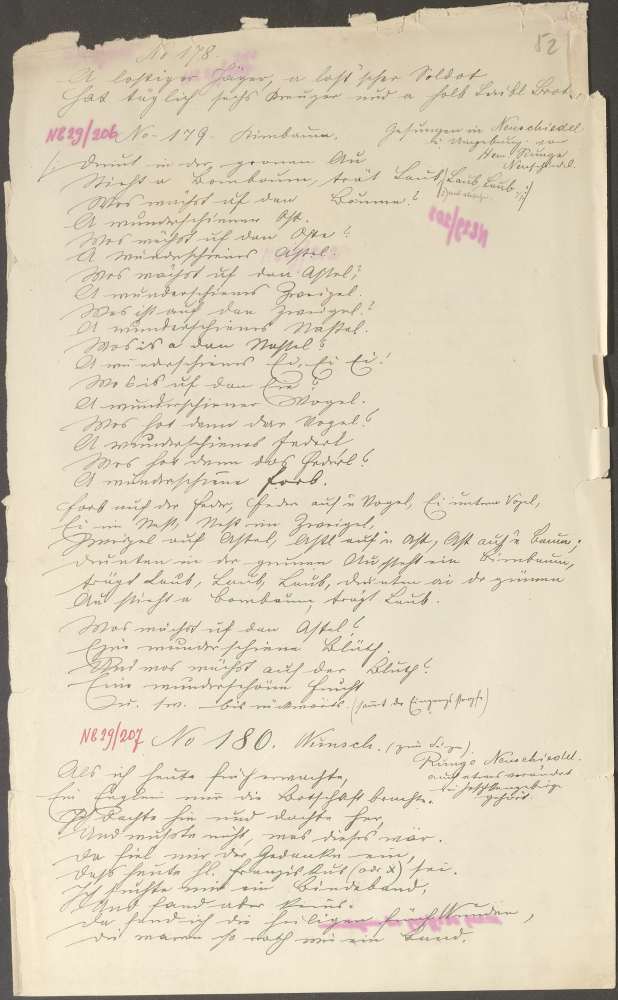 52
No 178
A lostiger Jäger, a lost'scher Soldot
Hot täglich sechs Kreuzer und a holb Laibl Brot.
N829/206 No - 179. Birnbaum. Gesungen in Neuschiedel
u. Umgebung, von
Herr Runge
Neuschiedel.
Drunt in der grienen Au
Stieht a Bombaum, trät Laub, Laub, Laub
Wos wächst uf dan Baume?
A wunderschiener Ost.
Wos wächst uf dan Oste?
A wunderschienes Astel.
Wos wächst uf dan Astel?
A wunderschienes Zweigel.
Wos ist auf dan Zweigel?
A wunderschienes Nastel.
Wos is a dan Nastel?
A wunderschienes Ei, Ei Ei!
Wos is uf dan Eie?
A wunderschiener Vogel.
Wos hot denn dar Vogel?
A wunderschienes Federl
Wos hot denn dos Federl?
A wunderschiene Forb.
Forb auf der Feder, Feder auf'n Vogel, Ei untern Vogel,
Ei im Nest, Nest im Zweigel,
Zweigel auf Astel, Astl auf'n Ast, Ast auf'n Baum;
drunten in der grünen Au steht ein Birnbaum,
trägt Laub, Laub, Laub, drunten ai dr grünen
Au stieht a Bombaum, trägt Laub.
Wos wächst uf dan Astel?
Eine wunderschiene Blüth.
Und wos wächst auf der Blüth?
Eine wunderschöne Frucht
N829/207 No 180. Wunsch.
Runge Neuschiedel.
auch etwas verändert
gehört
Als ich heute früh erwachte,
Ein Englein mir die Botschaft brachte.
Ich dachte hin und dachte her,
Und wußte nicht, was dieses wär.
Da fiel mir der Gedanke ein,
Dass heute hl. Franziskus (oder X) sei.
Ich suchte mir ein Bindeband,
Und fand aber keins.
Da fand ich die heiligen fünf Wunden,
Die waren so roth wie ein Band.